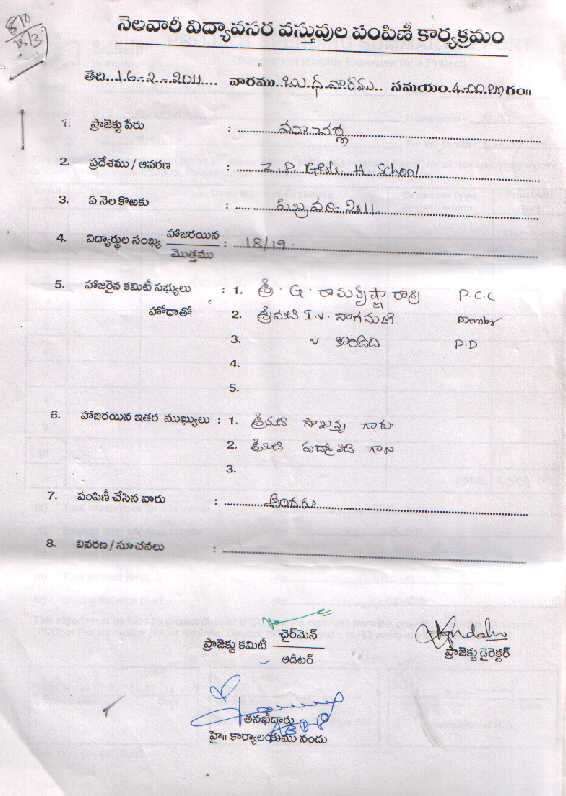 నెలవారీ విద్యావసర వస్తువుల పంపిణీ కార్యక్రమం
తేది 16-2-2011 వారము బుధవారము సమయం 4-00 గం॥
1. ప్రాజెక్టు పేరు :
2. ప్రదేశము / ఆవరణ : Z.P. Girls H. School
3. ఏ నెల కొఱకు : ఫిబ్రవరి-2011
4. విద్యార్థుల సంఖ్య హాజరయిన / మొత్తము : 18/19
5. హాజరైన కమిటీ సభ్యులు : 1. శ్రీ. G. రామకృష్ణా రావు P.C.C
హోదాతో 2. శ్రీమతి T.V. నాగమణి Member
3. " P.D
4.
5.
6. హాజరయిన ఇతర ముఖ్యులు : 1. శ్రీమతి గారు
2. శ్రీమతి పద్మావతి గారు
3.
7. పంపిణీ చేసిన వారు :
8. వివరణ / సూచనలు :
ప్రాజెక్టు కమిటీ ఛైర్‌మెన్
ఆడిటర్
ప్రాజెక్టు డైరెక్టర్
తనఖీదారు
హై॥ కార్యాలయము నందు